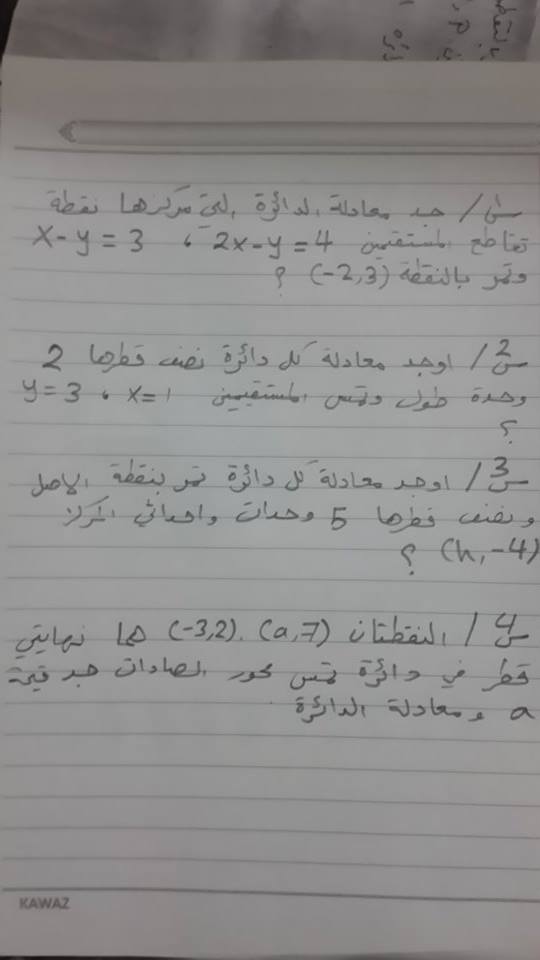 س1/ جد معادلة الدائرة التي مركزها نقطة
تقاطع المستقيمين 2x-y=4 ، x-y=3
وتمر بالنقطة (-2,3) ؟
س2/ اوجد معادلة كل دائرة نصف قطرها 2
وحدة طول وتمس المستقيمين x=1 ، y=3
؟
س3/ اوجد معادلة كل دائرة تمر بنقطة الاصل
ونصف قطرها 5 وحدات واحداثي المركز
(h,-4) ؟
س4/ النقطتان (a,7) ، (-3,2) هما نهايتي
قطر في دائرة تمس محور الصادات جد قيمة
a ومعادلة الدائرة
KAWAZ